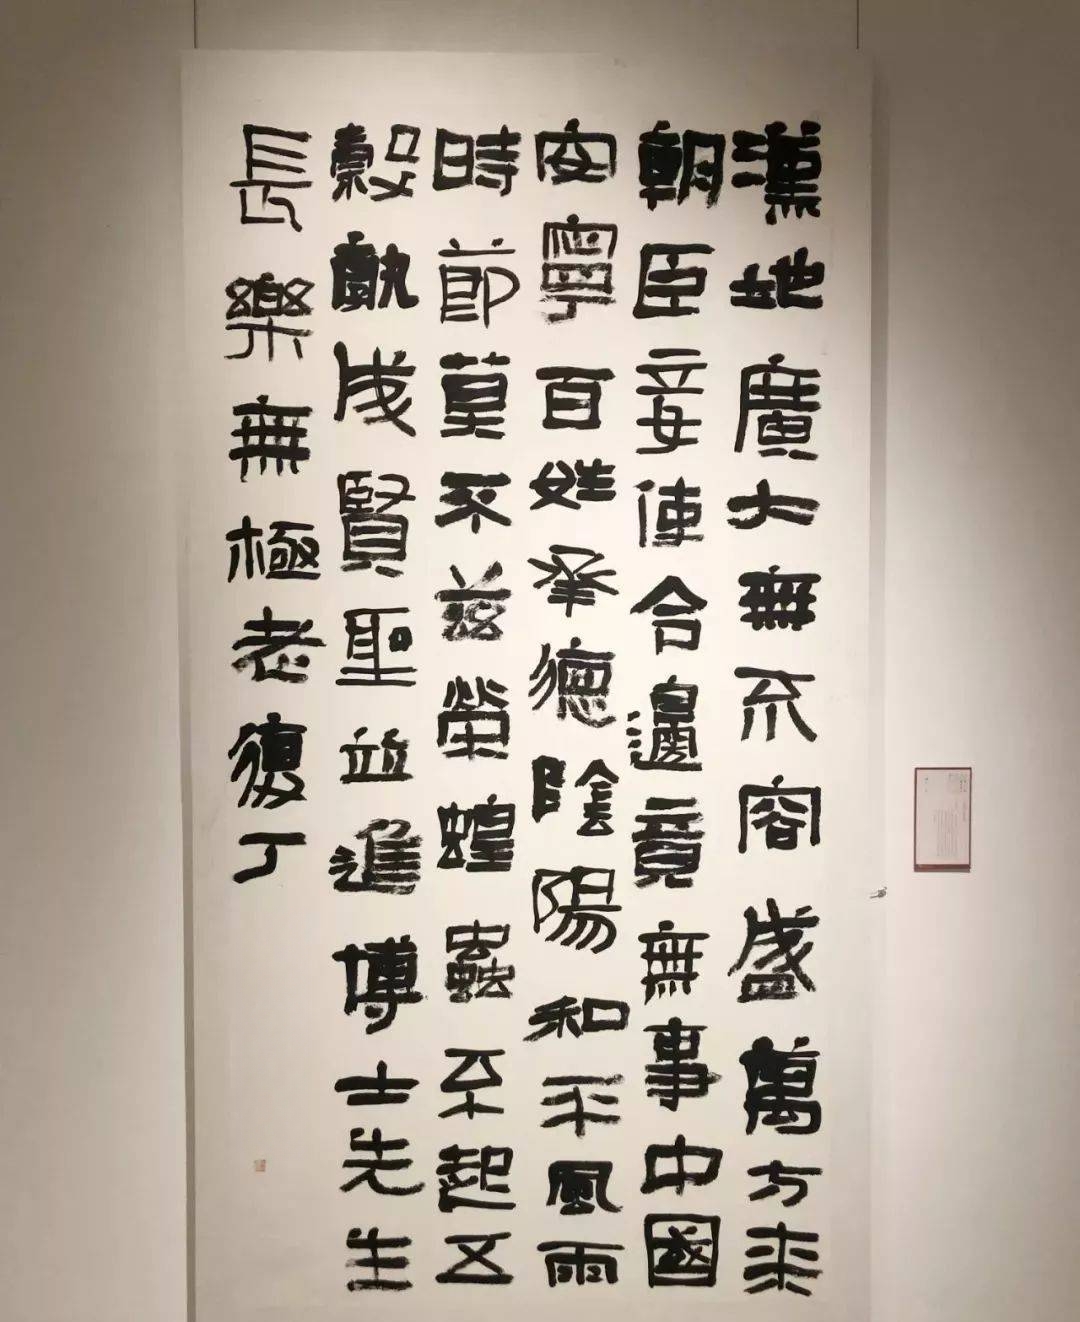 漢地廣大無不容盛萬方來
朝臣妾使合邊竟無事中國
安寧百姓承德陰陽和平風雨
時節莫不茲榮蝗蟲不起五
穀孰成賢聖並進博士先生
長樂無極老復丁